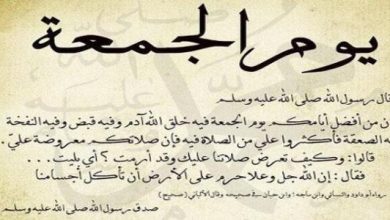 يوم الجمعة
قال رسول الله صلى الله عليه وسلم
إن من أفضل أيامكم يوم الجمعة فيه خلق الله آدم وفيه قبض وفيه النفخة
فيه الصعقة فأكثروا علي من الصلاة فيه فإن صلاتكم معروضة علي.
قالوا: وكيف تعرض صلاتنا عليك وقد أرمت؟ أي بليت...
فقال: إن الله جل وعلا حرم على الأرض أن تأكل أجسامنا
رواه أبو داود والنسائي وابن ماجه؛ وابن حبان في صحيحه وقال الألباني (صحيح)
صدق رسول الله صلى الله عليه وسلم